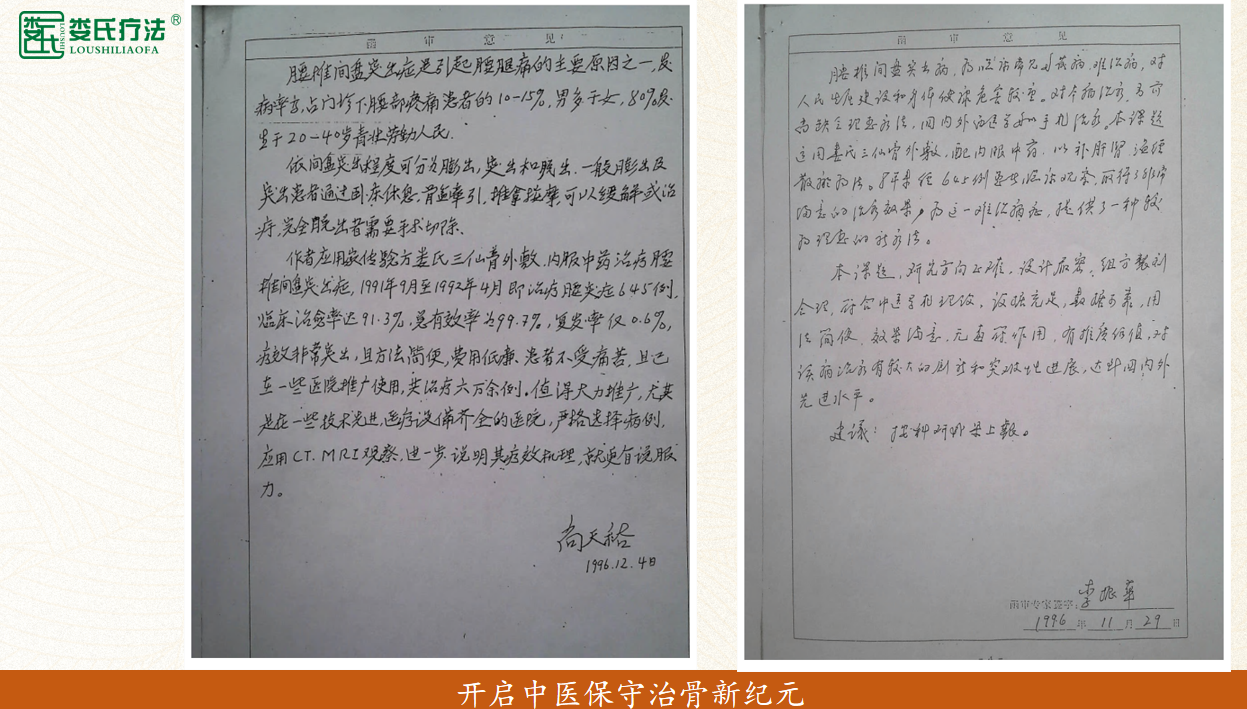 娄氏疗法®
LOUSHILIAOFA
函 审 意 见
腰椎间盘突出症是引起腰腿痛的主要原因之一,发
病率高,占门诊下腰部疼痛患者的10-15%,男多于女,80%发
生于20-40岁青壮劳动人民.
依间盘突出程度可分为膨出,突出和脱出.一般膨出及
突出患者通过卧床休息,骨盆牵引,推拿按摩,可以缓解或治
疗,完全脱出者需要手术切除.
作者应用家传验方娄氏三仙膏外敷.内服中药治疗腰
椎间盘突出症,1991年9月至1992年4月即治疗腰突症645例.
临床治愈率达91.3%,总有效率为99.7%,复发率仅0.6%,
疗效非常突出,且方法简便,费用低廉、患者不受痛苦,且已
在一些医院推广使用,共治疗六万余例.值得大力推广,尤其
是在一些技术先进,医疗设备齐全的医院,严格选择病例,
应用CT.MRI观察,进一步说明其疗效机理,就更有说服
力。
尚天裕
1996.12.4日
函 审 意 见
腰椎间盘突出病,为临床常见病,难治病,对
人民 建设和身体健康危害较重。对本病治疗,
尚缺乏理想疗法,国内外 手术治疗。本课题
运用娄氏三仙膏外敷,配内服中药.以补肝肾.温经
散瘀为法。 经645例 临床观察,取得了非常
满意的治疗效果,为这一难治病症,提供了一种较
为理想的新疗法。
本课题,研究方向正确,设计严密,组方製剂
合理,符合中医学 理论,证据充足,数据可靠,用
法简便,效果满意,无毒 作用,有推广价值,对
该病治疗有较大的创新和突破性进展,达到国内外
先进水平。
建议:按科研成果上报。
函审专家签字:李振华
1996 年 11 月 29 日
开启中医保守治骨新纪元